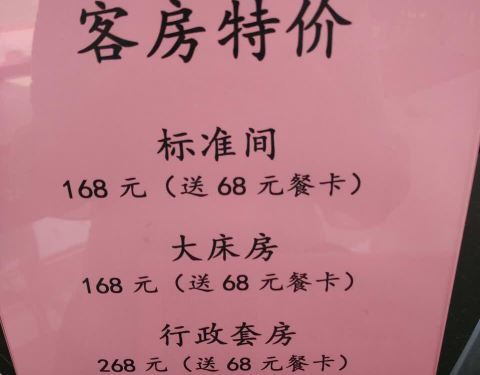 客房特价
标准间
168 元（送 68 元餐卡）
大床房
168 元（送 68 元餐卡）
行政套房
268 元（送 68 元餐卡）